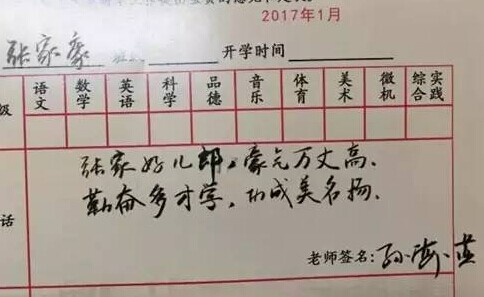 2017年1月
张家豪 开学时间
级 语文 数学 英语 科学 品德 音乐 体育 美术 微机 综合实践
张家好儿郎，豪气万丈高、
勤奋多才学，功成美名扬、
话
老师签名：孙海燕